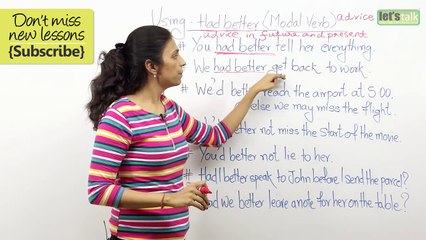 Don't miss
new lessons
{Subscribe}
let's talk
Using - Had better (Modal Verb) advice
advice in future and present
# You had better tell her everything.
We had better get back to work.
# We'd better reach the airport at 5:00.
else we may miss the flight.
better not miss the start of the movie.
You'd better not lie to her.
# Had I better speak to John before I send the parcel?
Had we better leave a note for her on the table?